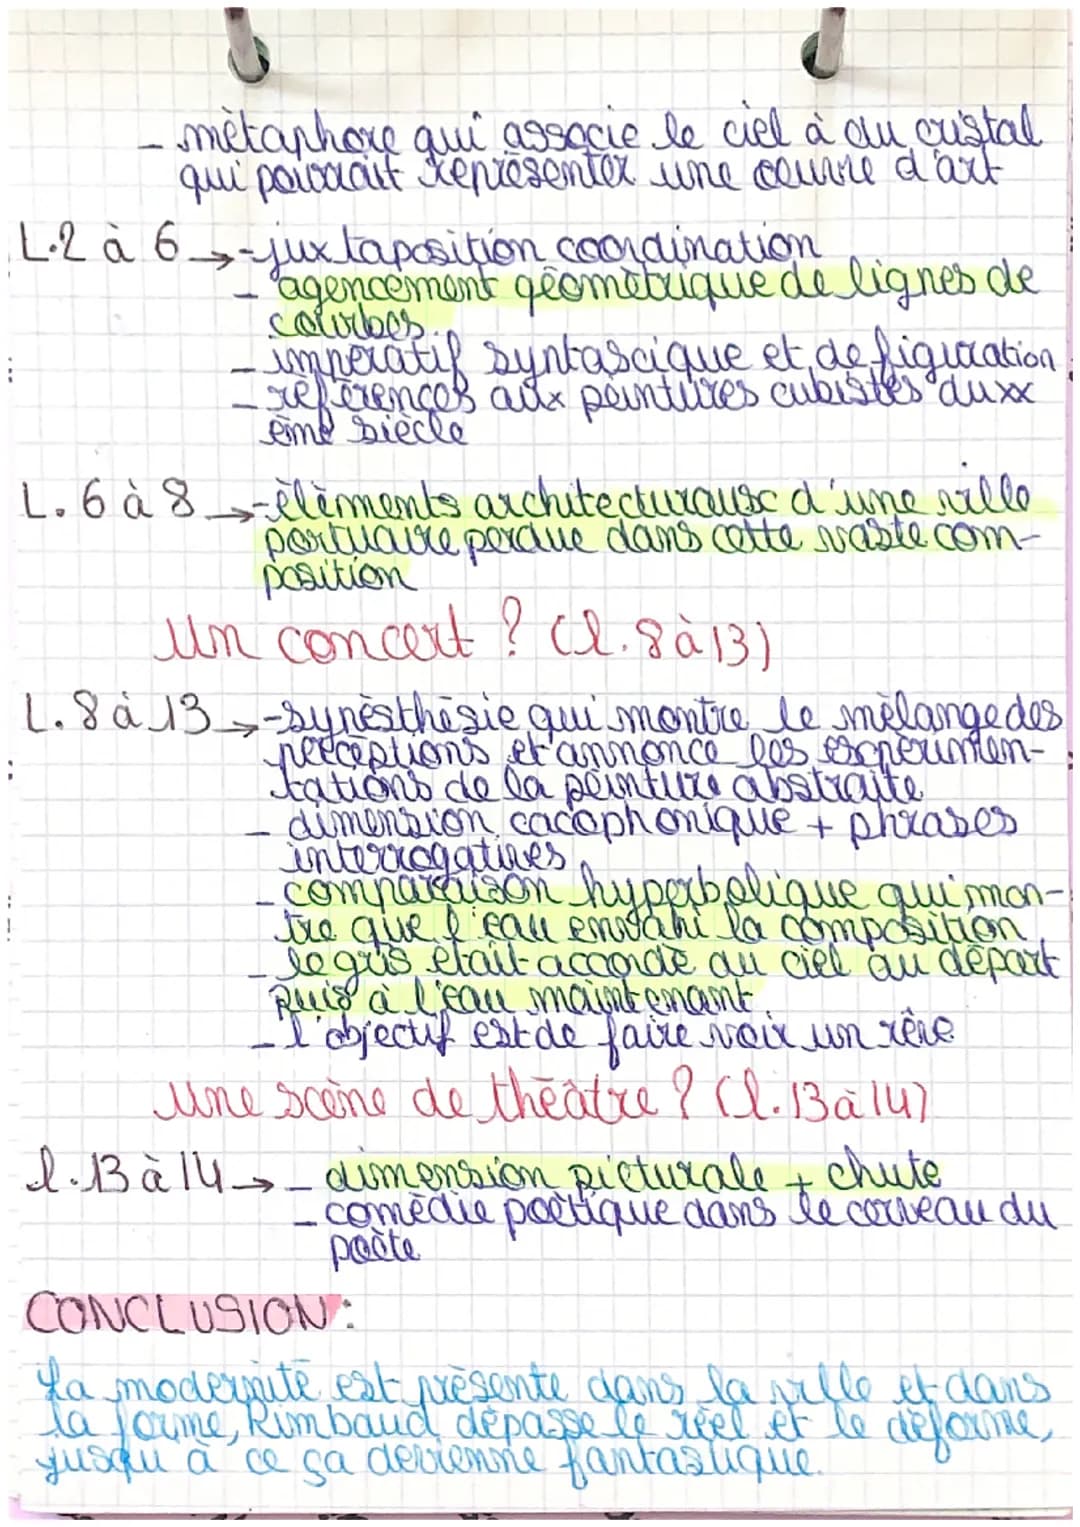 - métaphore qui associe le ciel à du cristal
qui pourrait représenter une œuvre d'art
L.2 à 6 → - juxtaposition coordination
- agencement géométrique de lignes de
courbes.
- impératif syntascique et de figuration
- références aux peintures cubistes du xx
ème siècle
L. 6 à 8 → - élèments architecturausc d'une ville
portuaire perdue dans cette vaste com-
position
Un concert ? (l. 8 à 13)
L. 8 à 13 → - synésthésie qui montre le mélange des
perceptions et annonce les expérimen-
tations de la peinture abstraite
- dimension cacophonique + phrases
interrogatives
- comparaison hyperbolique qui mon-
tre que l'eau envahi la composition
- le gris était accordé au ciel au départ
puis à l'eau maintenant.
- l'objectif est de faire voir un rêve
Une scène de théâtre ? (l. 13 à 14)
l. 13 à 14 → - dimension picturale + chute
- comédie poétique dans le cerveau du
poète
CONCLUSION :
La modernité est présente dans la ville et dans
la forme, Rimbaud dépasse le réel et le déforme,
jusqu'à ce ça devienne fantastique.